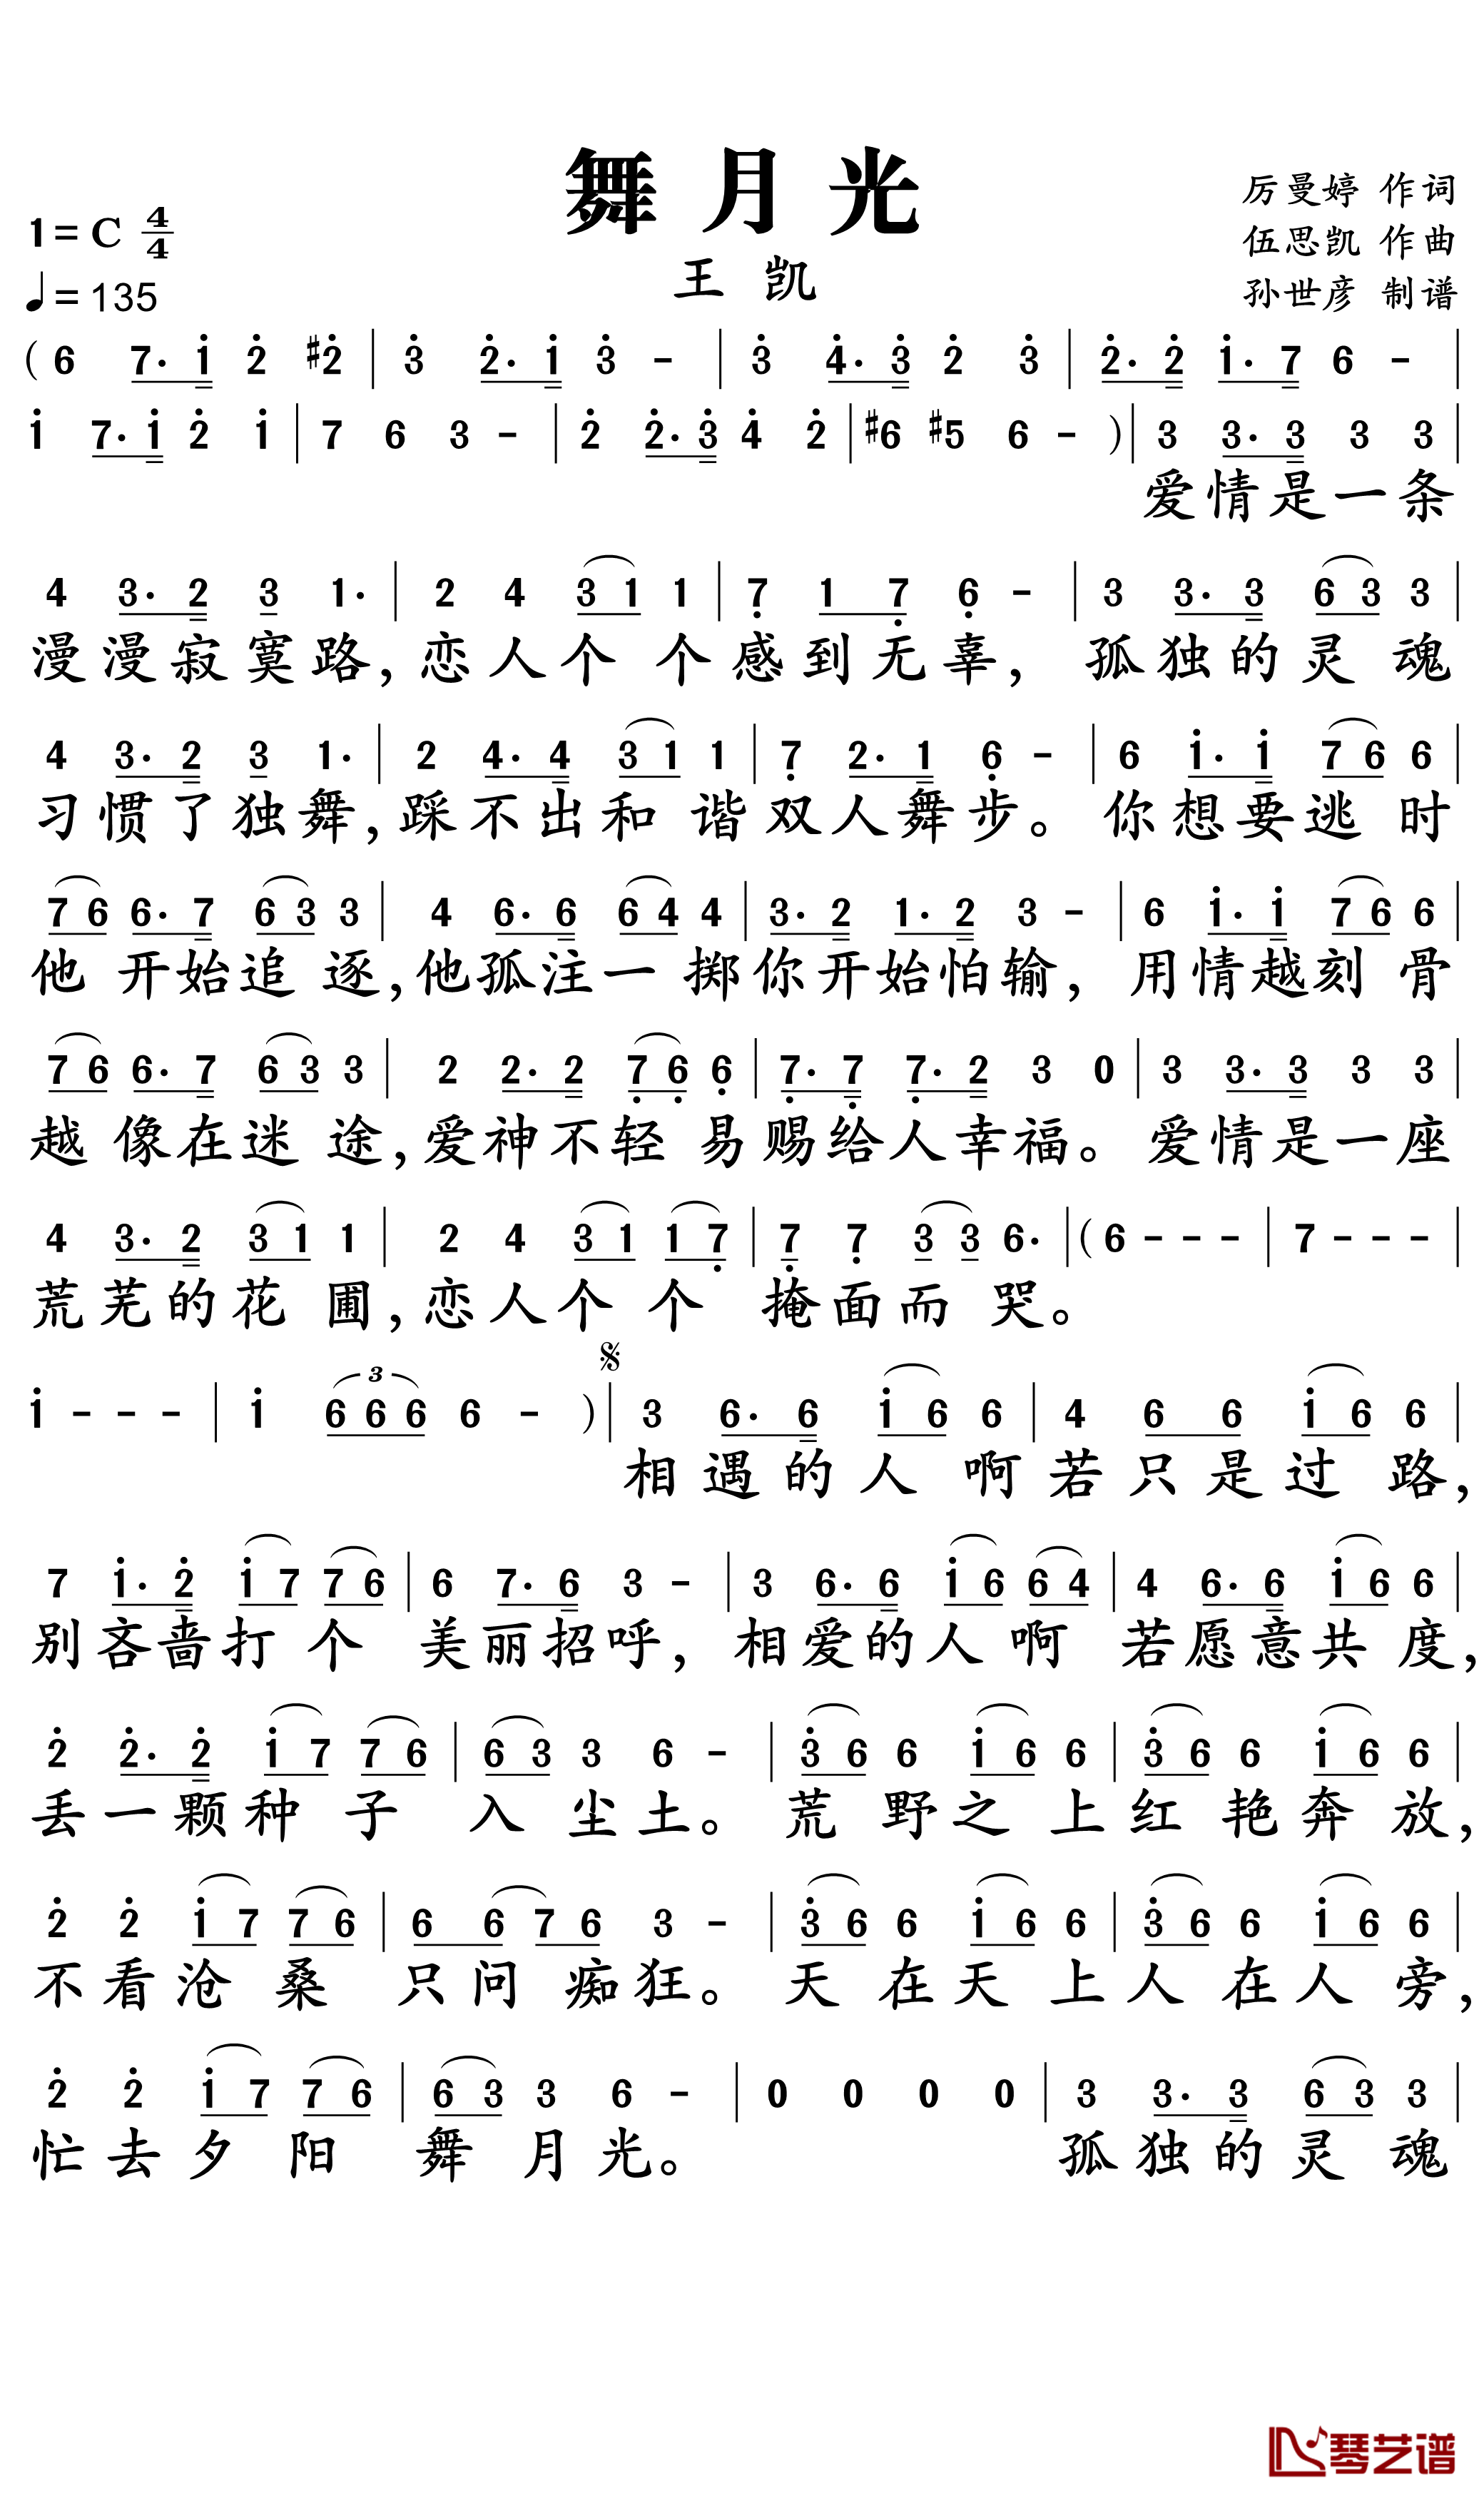 舞月光
王凯
厉曼婷 作词
伍思凯 作曲
孙世彦 制谱
1=C 4/4
♩=135
( 6 7· i 2 #2 | 3 2· i 3 - | 3 4· 3 2 3 | 2· 2 i· 7 6 - |
i 7· i 2 i | 7 6 3 - | 2 2· 3 4 2 | #6 #5 6 - ) | 3 3· 3 3 3 |
爱情是一条
4 3· 2 3 1· | 2 4 3 1 1 | 7 1 7 6 - | 3 3· 3 6 3 3 |
漫漫寂寞路,恋人个个感到无辜,孤独的灵魂
4 3· 2 3 1· | 2 4· 4 3 1 1 | 7 2· 1 6 - | 6 i· i 7 6 6 |
习惯了独舞,踩不出和谐双人舞步。你想要逃时
7 6 6· 7 6 3 3 | 4 6· 6 6 4 4 | 3· 2 1· 2 3 - | 6 i· i 7 6 6 |
他开始追逐,他孤注一掷你开始怕输,用情越刻骨
7 6 6· 7 6 3 3 | 2 2· 2 7 6 6 | 7· 7 7· 2 3 0 | 3 3· 3 3 3 |
越像在迷途,爱神不轻易赐给人幸福。爱情是一座
4 3· 2 3 1 1 | 2 4 3 1 1 7 | 7 7 3 3 6· | ( 6 - - - | 7 - - - |
荒芜的花圃,恋人个个掩面而哭。
i - - - | i 6 6 6 6 - ) | 3 6· 6 i 6 6 | 4 6 6 i 6 6 |
相遇的人啊若只是过路,
7 i· 2 i 7 7 6 | 6 7· 6 3 - | 3 6· 6 i 6 6 4 | 4 6· 6 i 6 6 |
别吝啬打个美丽招呼,相爱的人啊若愿意共度,
2 2· 2 i 7 7 6 | 6 3 3 6 - | 3 6 6 i 6 6 | 3 6 6 i 6 6 |
丢一颗种子入尘土。荒野之上红艳奔放,
2 2 i 7 7 6 | 6 6 7 6 3 - | 3 6 6 i 6 6 | 3 6 6 i 6 6 |
不看沧桑只问痴狂。天在天上人在人旁,
2 2 i 7 7 6 | 6 3 3 6 - | 0 0 0 0 | 3 3· 3 6 3 3 |
忙去夕阳舞月光。孤独的灵魂
琴艺谱